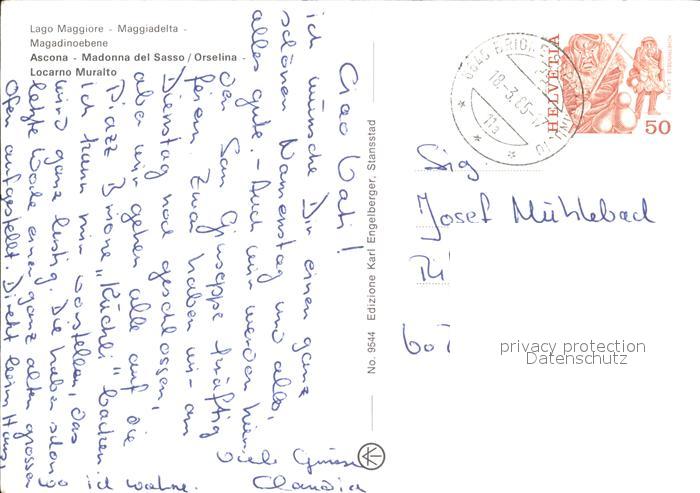 Lago Maggiore - Maggiadelta -
Magadinoebene
Ascona - Madonna del Sasso / Orselina -
Locarno Muralto
Ciao Vati!
ich wünsche Dir einen ganz
schönen Namenstag und alles,
alles gute. - Auch wir werden hier
den San Giuseppe kräftig
feiern. Zwar haben wir am
Dienstag noch geschlossen,
aber wir gehen alle auf die
Piazz "Küchli" backen.
Ich kann mir vorstellen, das
wird ganz lustig. Die haben schon
letzte Woche einen ganz alten grossen
Ofen aufgestellt. Direkt beim Haus,
wo ich wohne.
Viele Grüsse
Claudia
No. 9544 Edizione Karl Engelberger, Stansstad
18.3.85-17
HELVETIA
50
Sig.
Josef Mühlebach
privacy protection
Datenschutz